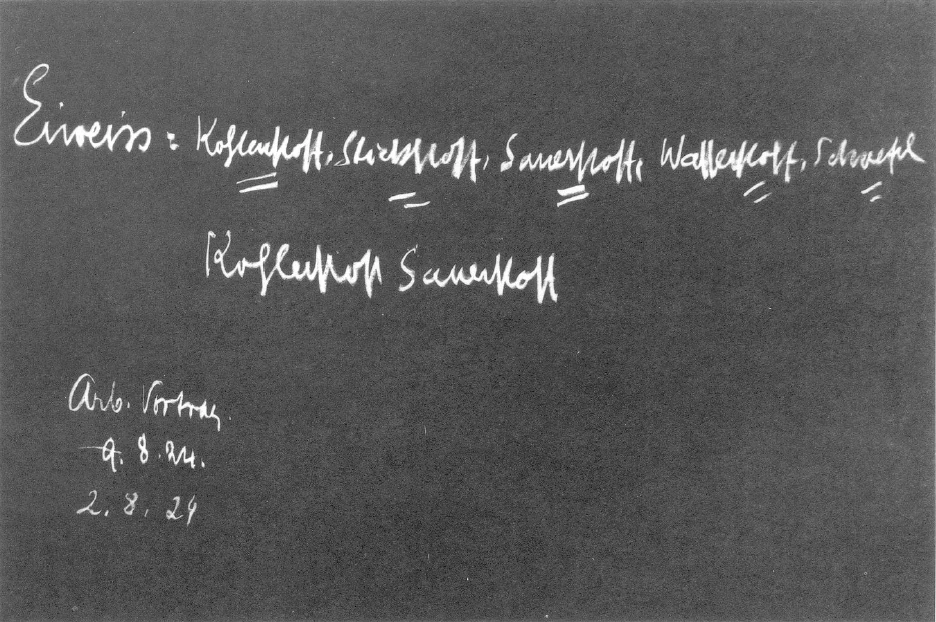 Eiweiss: Kohlenstoff, Stickstoff, Sauerstoff, Wasserstoff, Schwefel
Kohlenstoff Sauerstoff
Arb. Vortrag.
9. 8. 24.
2. 8. 24